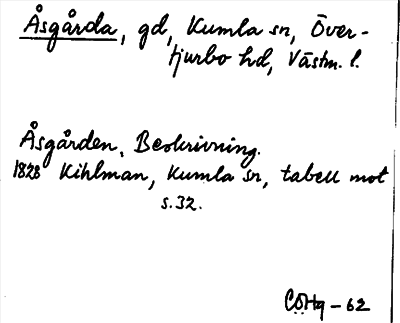 Åsgårda, gd, Kumla sn, Över-
tjurbo hd, Västm. l.
Åsgården. Beskrivning.
1828 Kihlman, Kumla sn, tabell mot
s. 32.
CÖHg - 62